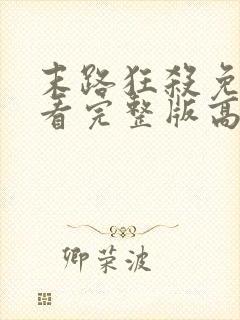 末路狂殺免
看完整版高
卿荣波